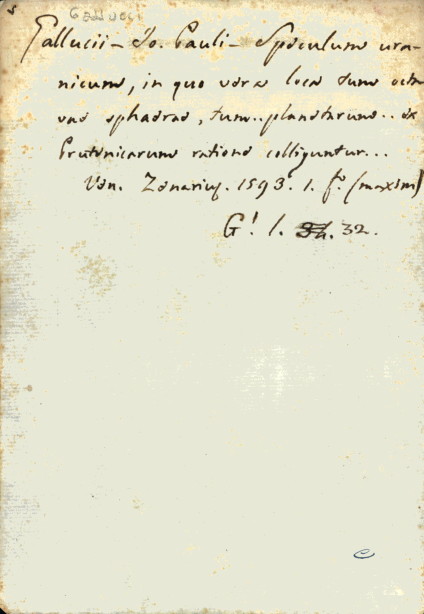 Gallucci
Gallucii - Jo. Pauli - Speculum ura-
nicum, in quo vera loca tum octa-
vae sphaerae, tum.. planetarum.. ex
Prutenicarum ratione colliguntur...
Ven. Zenarius. 1593. 1. fo. (maxim)
G! 1. 32.